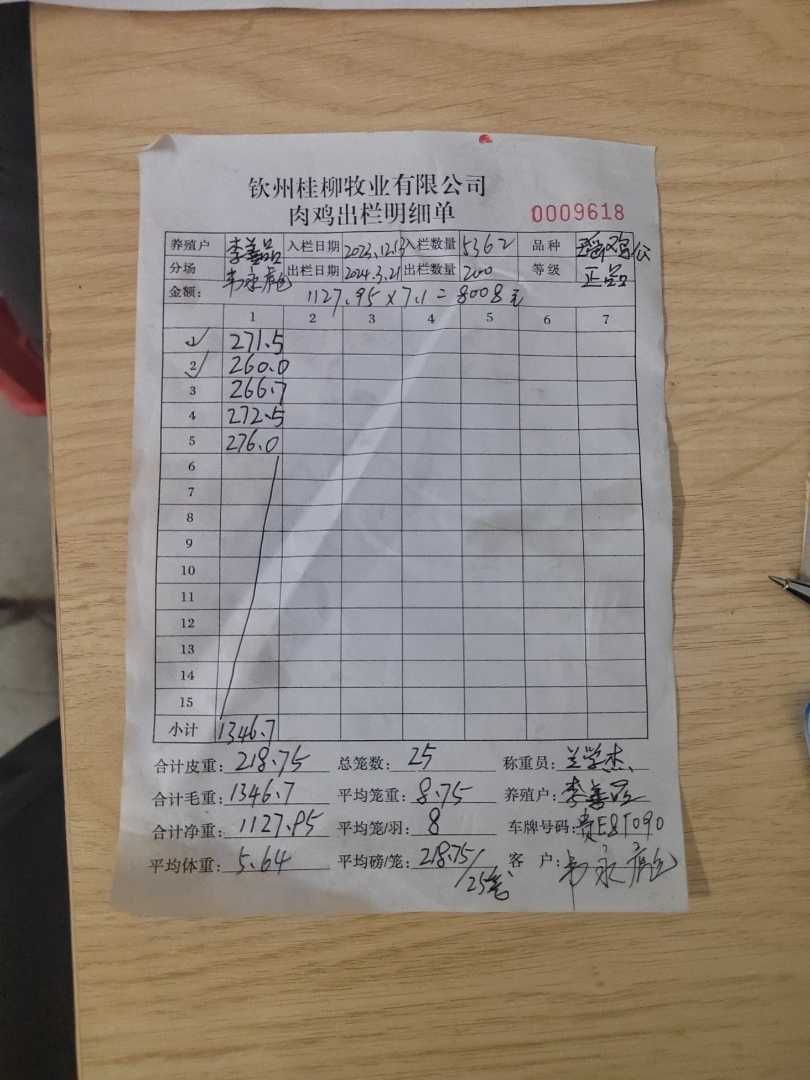 钦州桂柳牧业有限公司
肉鸡出栏明细单 0009618
养殖户 李善品 入栏日期 2023.12.13 入栏数量 5362 品种 瑶鸡公
分场 韦永彪 出栏日期 2024.3.21 出栏数量 200 等级 正品
金额: 1127.95×7.1=8008元
1 2 3 4 5 6 7
1 271.5
2 260.0
3 266.7
4 272.5
5 276.0
6
7
8
9
10
11
12
13
14
15
小计 1346.7
合计皮重: 218.75 总笼数: 25 称重员: 兰学杰
合计毛重: 1346.7 平均笼重: 8.75 养殖户: 李善品
合计净重: 1127.95 平均笼/羽: 8 车牌号码:
平均体重: 5.64 平均磅/笼: 218.75/25 客 户: 韦永彪